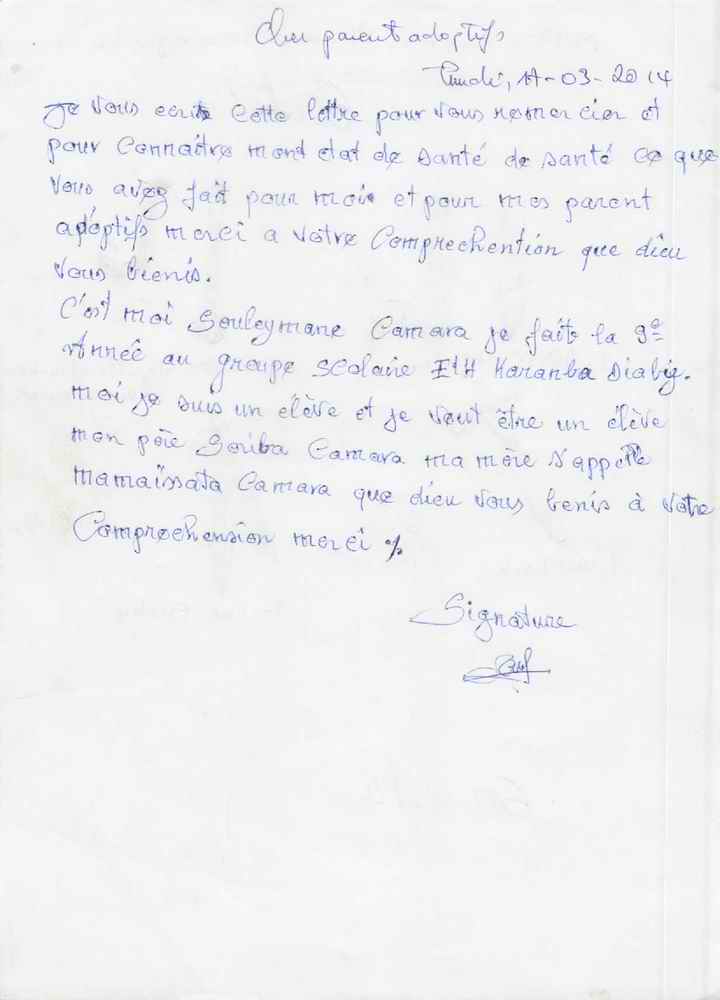 Cher parent adoptifs
lundi, 17-03-2014
je vous ecris cette lettre pour vous remercier et
pour connaitre mont etat de santé de santé ce que
vous avez fait pour moi et pour mes parent
adoptifs merci a votre comprechention que dieu
vous bienis.
C'est moi Souleymane Camara je fait la 9e
Année au groupe scolaire ElH Karamba Diaby.
moi je suis un élève et je veut être un élève
mon père Soriba Camara ma mère s'appelle
mamaïssata Camara que dieu vous benis à votre
Comprehension merci %
Signature